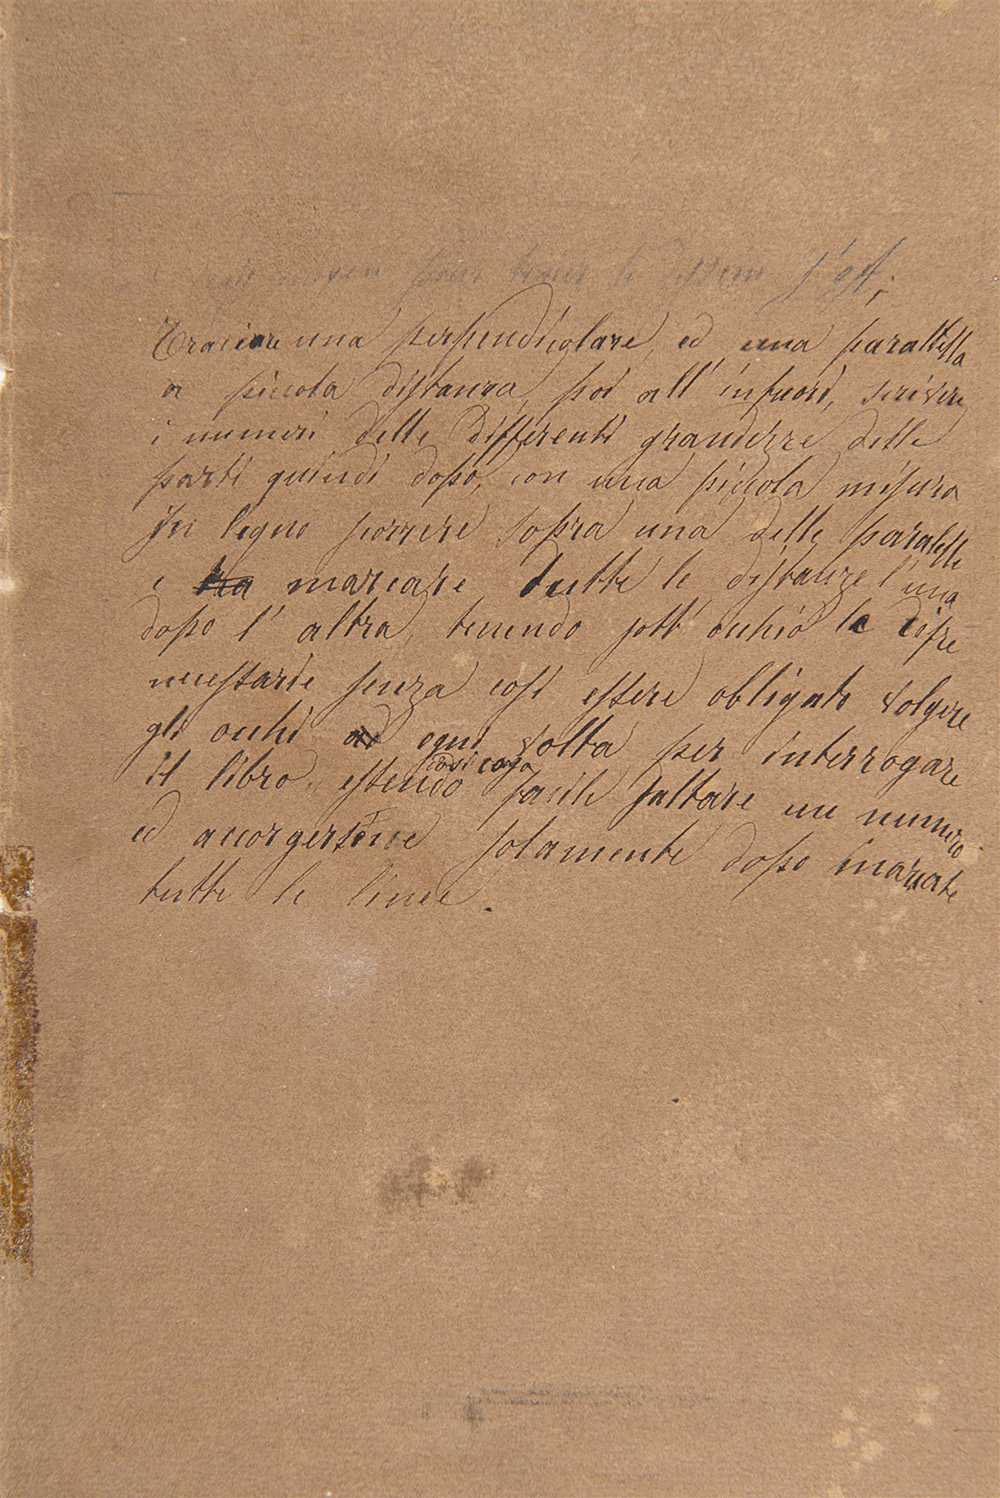 moyen pour tenir le dessein s'est;
Traciare una perpendicolare, ed una parallella
a piccola distanza, poi all' infuori, scrivere
i numeri delle differenti grandezze delle
parti quindi dopo, con una piccola misura
in legno porrere sopra una delle paralelle
e marcare tutte le distanze l'una
dopo l' altra, tenendo sott' occhio le cifre
necessarie senza cosi essere obligato volgere
gli occhi ad ogni volta per interrogare
il libro, essendo cosi cosa facile saltare un numero
ed accorgersene solamente dopo marcate
tutte le linee.